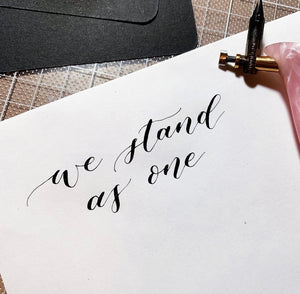 we stand
as one